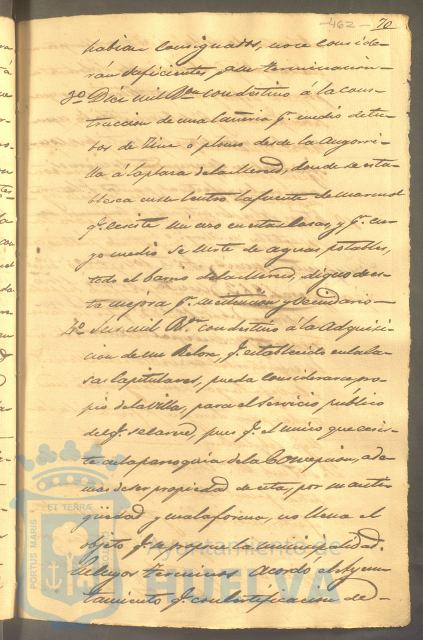 462 - 70
habian consignados, no se conside-
rán suficientes pª su terminacion -
3º Diez mil Rˢ con destino á la cons-
truccion de una cañeria pʳ medio de tu-
bos de Zinc ó plomo desde la
á la plaza de la Merced, donde se esta-
blesca en su centro la fuente de marmol
qᵉ ecsiste sin uso en estas Casas, y pʳ cu-
yo medio se surte de aguas potables,
todo el barrio de la Merced, digno de es-
ta mejora pʳ su estencion y vecindario -
4º Seis mil Rˢ con destino á la Adquisi-
cion de un Relox, qᵉ establecido en las Ca-
sas Capitulares, pueda considerarse pro-
pio de la Villa, para el servicio publico
del qᵉ se carece, pues qᵉ el unico que ecsis-
te en la parroquia de la Concepcion, ade-
mas de ser propiedad de esta, por su anti-
güedad y mala forma, no llena el
objeto qᵉ se propone la municipalidad.
En cuyos terminos Acordó el Ayun-
tamiento qᵉ con certificacion de -
PORTUS MARIS ET TERRÆ
Ayuntamiento de
HUELVA